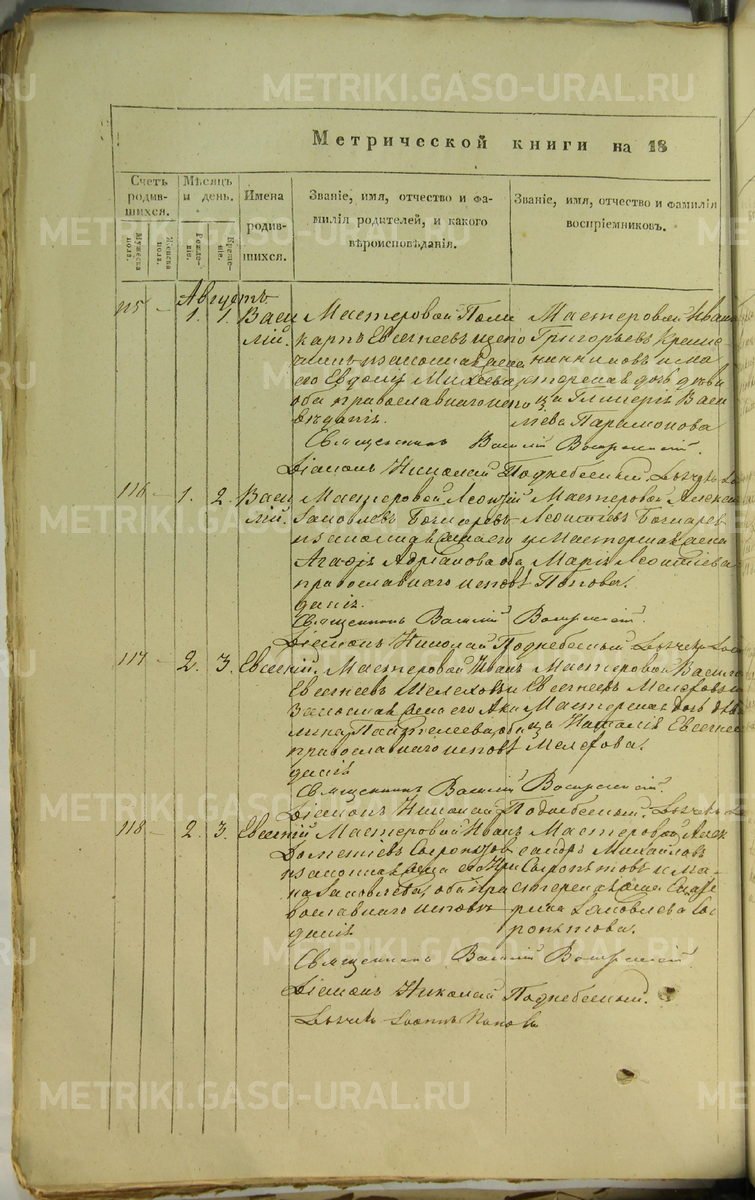 METRIKI.GASO-URAL.RU
Метрической книги на 18
Счетъ родив-шихся.
Мужеска полъ.
Женска полъ.
Мѣсяцъ и день.
Рожде-ніе.
Креще-ніе.
Имена родив-шихся.
Званіе, имя, отчество и фа-милія родителей, и какого вѣроисповѣданія.
Званіе, имя, отчество и фамилія воспріемниковъ.
Августъ
115 — 1. 1. Васи
лій.
Мастеровой Поли
карпъ Евгеніевъ
законная жена
его Евдокія Михеева
оба православнаго испо
вѣданія.
Мастеровой Иванъ
Григорьевъ
и ма
стерская дочь дѣви
ца Гликерія Васи
льева Парамонова
Священникъ Василій Воскресенскій.
Діаконъ Николай Поднебесный. Дьячекъ
116 — 1. 2. Васи
лій.
Мастеровой Леонтій
Яковлевъ Бочкаревъ
и законная жена его
Агафія Адріанова оба
православнаго исповѣ
данія.
Мастеровой Алексѣй
Леонтіевъ Бочкаревъ
и Мастерская жена
Марія Леонтіева
Попова.
Священникъ Василій Воскресенскій.
Діаконъ Николай Поднебесный. Дьячекъ
117 — 2. 3. Евгеній.
Мастеровой Иванъ
Евгеніевъ Мелеховъ и
законная жена его Аки
лина Пантелеева, оба
православнаго исповѣ
данія
Мастеровой Василій
Евгеніевъ Мелеховъ и
Мастерская дочь дѣви
ца Наталія Евгеніева
Мелехова.
Священникъ Василій Воскресенскій.
Діаконъ Николай Поднебесный. Дьячекъ
118 — 2. 3. Евгеній
Мастеровой Иванъ
Дометіевъ
и законная жена его Ири
на Яковлева, оба пра
вославнаго исповѣ
данія
Мастеровой Алек
сандръ Михайловъ
и ма
стерская жена
Яковлева
Священникъ Василій Воскресенскій.
Діаконъ Николай Поднебесный.
Дьячекъ Іоаннъ Поповъ